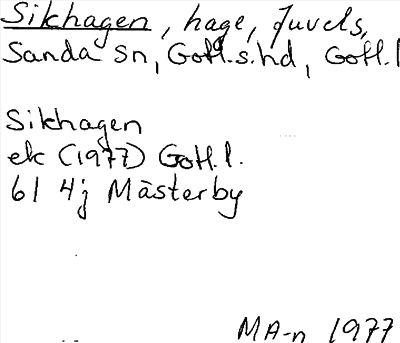 Sikhagen, hage, Juvels,
Sanda sn, Gotl.s.hd, Gotl.l
Sikhagen
ek (1977) Gotl.l.
61 4j Mästerby
MA-n 1977